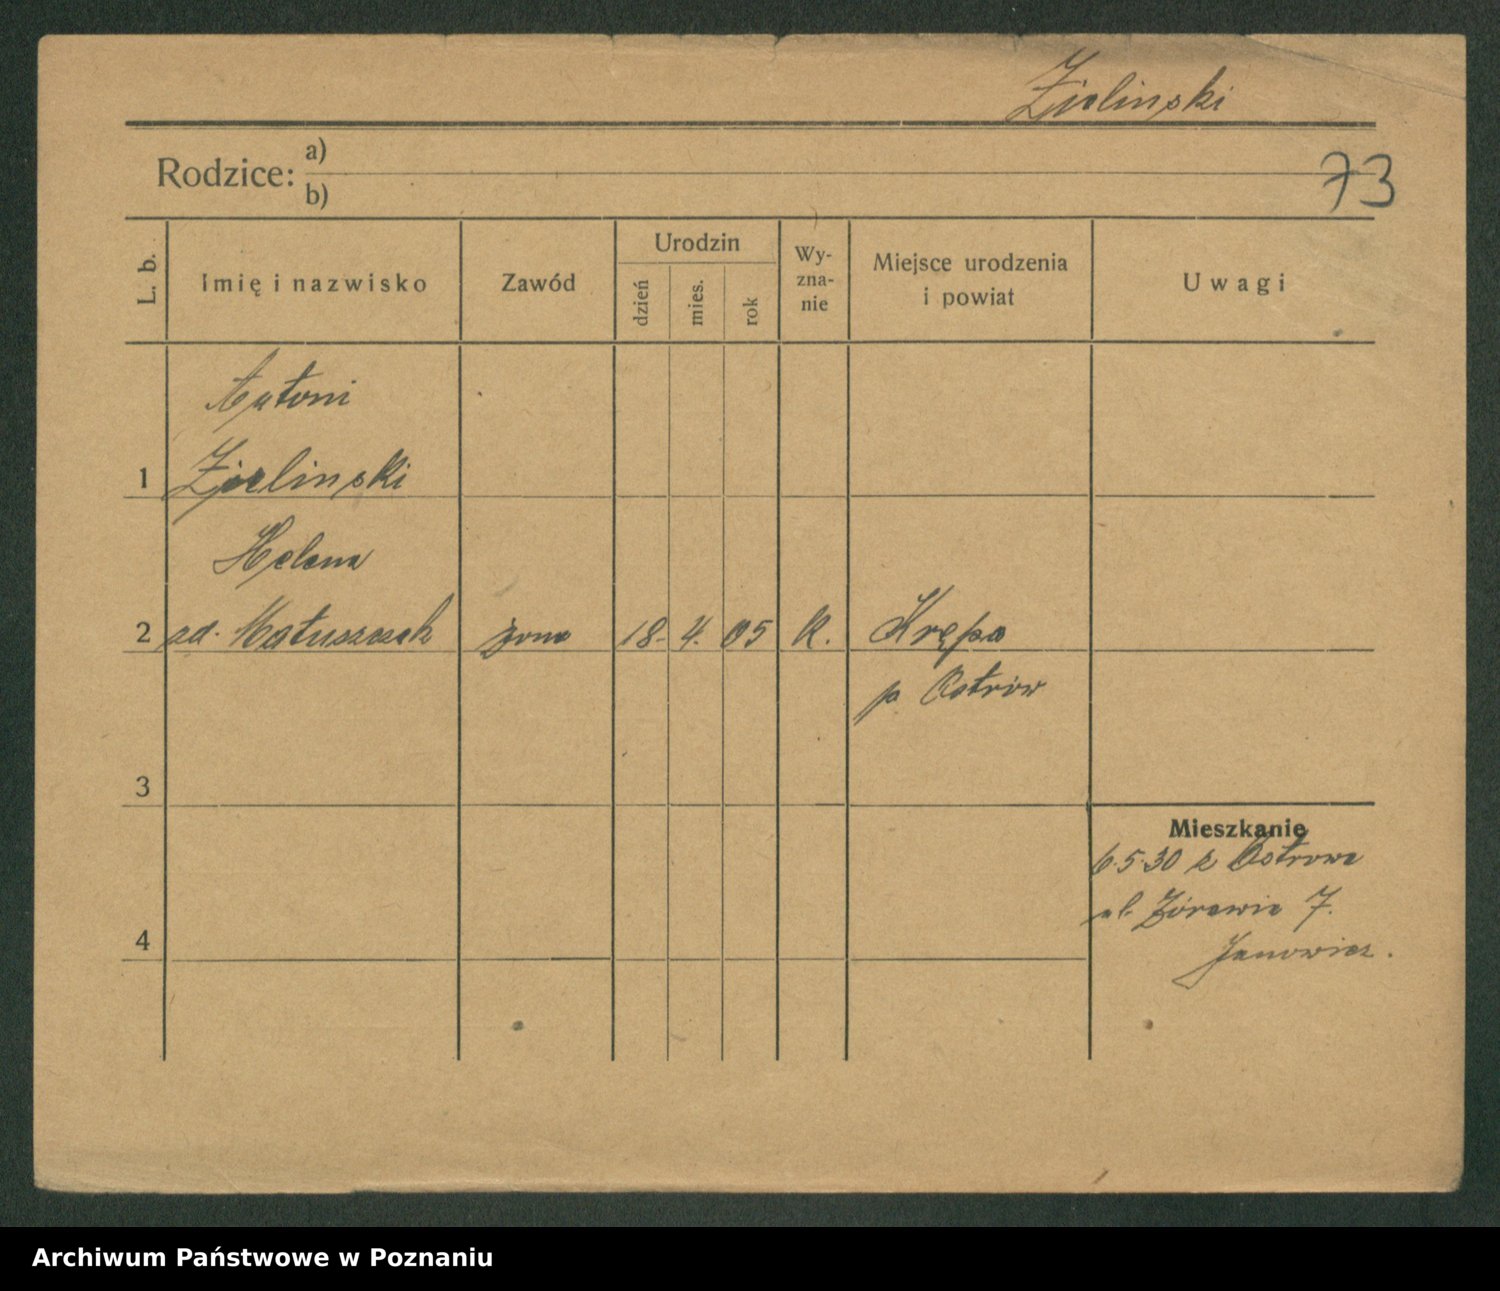 Zielinski
Rodzice: a)
b)
73
L. b.
Imię i nazwisko
Zawód
Urodzin
dzień
mies.
rok
Wy-
zna-
nie
Miejsce urodzenia
i powiat
Uwagi
Antoni
1 Zielinski
Helena
2 zd. Matuszczak żona 18. 4. 05 K. Krępa
p. Ostrów
3
Mieszkanie
6.5.30 z Ostrowa
ul. Żórawia 7.
4
Janowicz.
Archiwum Państwowe w Poznaniu